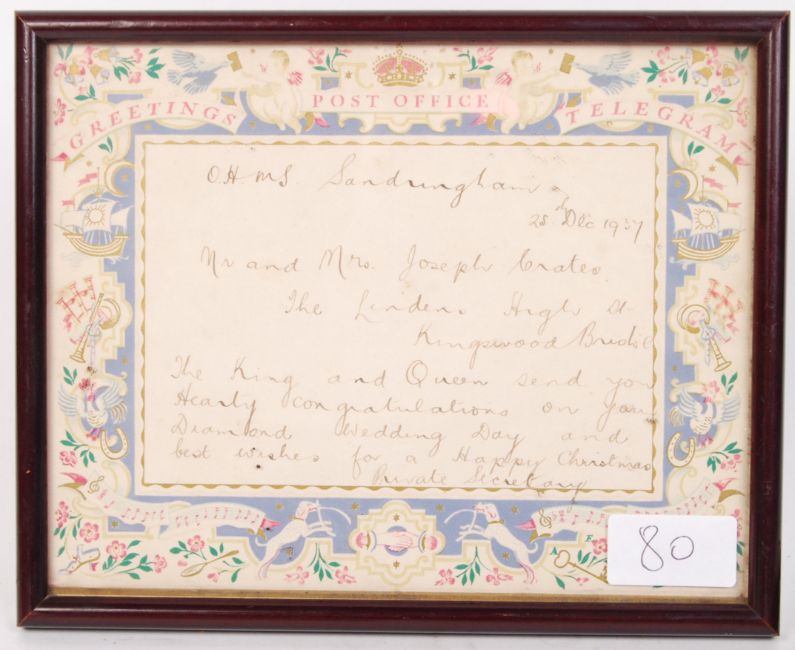 GREETINGS POST OFFICE TELEGRAM
O.H.M.S. Sandringham
25 Dec 1937
Mr and Mrs. Joseph Crates
The Lindens High St
Kingswood Bristol
The King and Queen send you
Hearty congratulations on your
Diamond Wedding Day and
best wishes for a Happy Christmas
Private Secretary
80